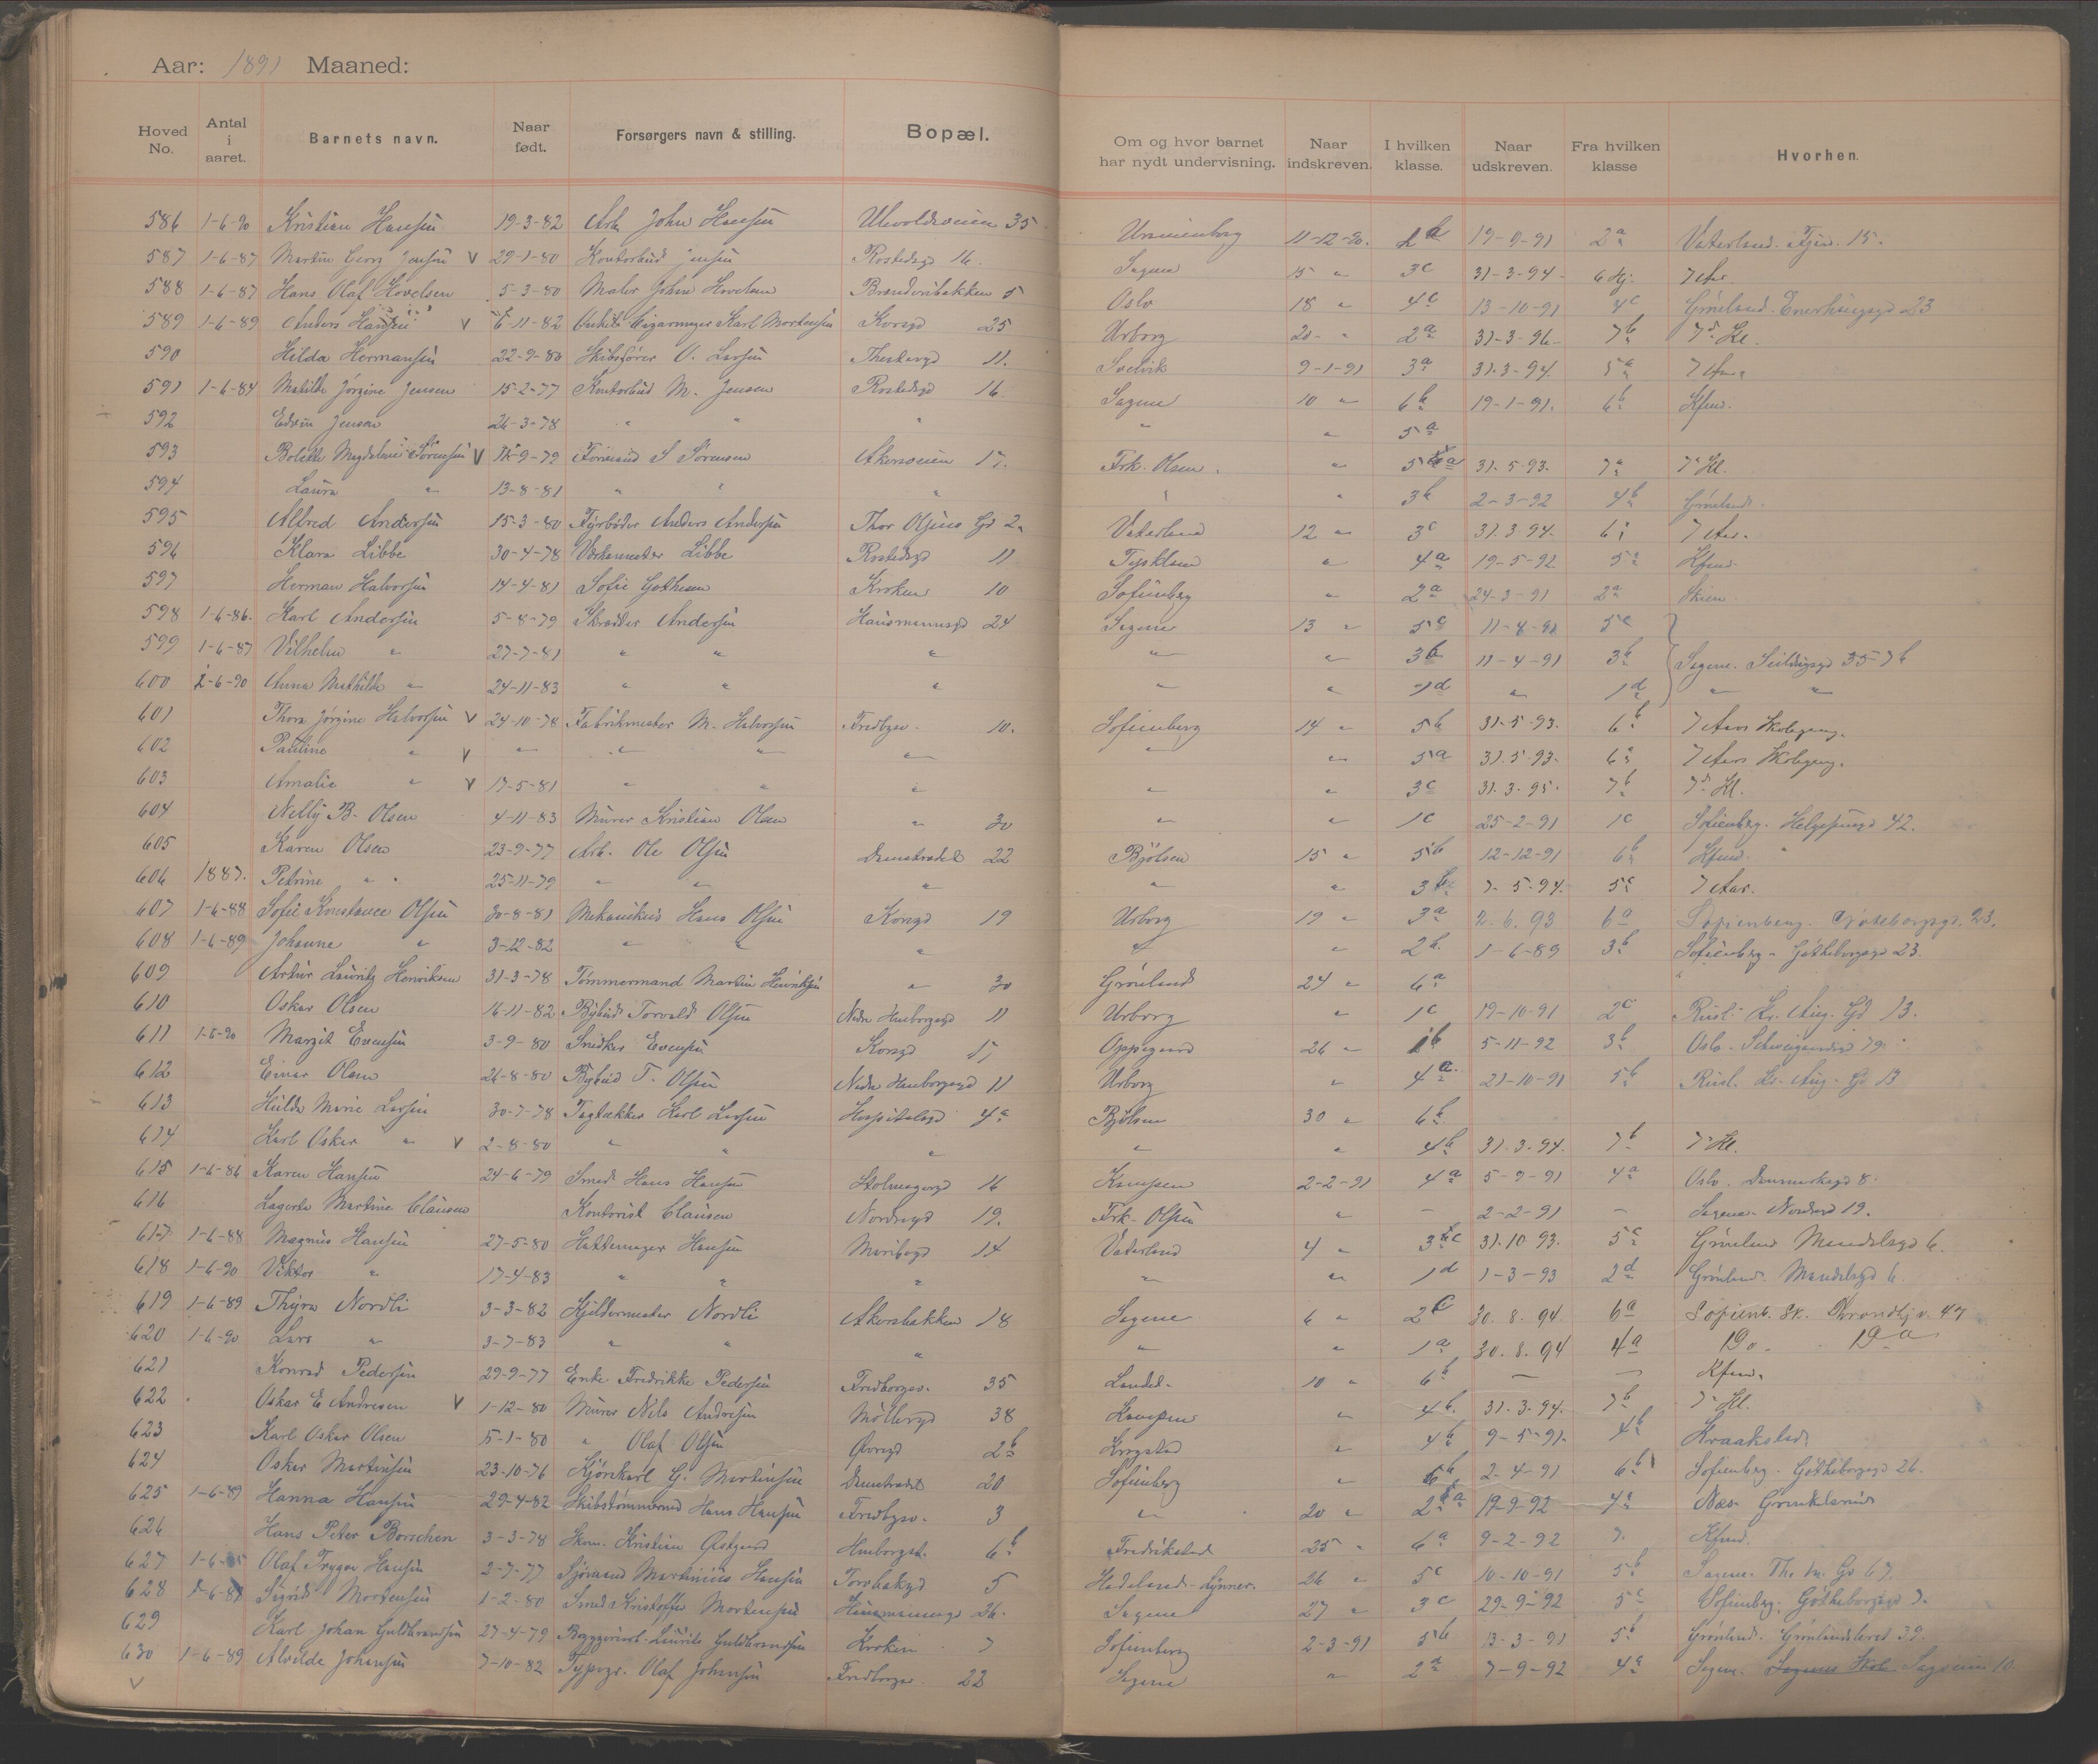 Aar: 1891 Maaned:
Hoved No. Antal i aaret. Barnets navn. Naar født. Forsørgers navn & stilling. Bopæl. Om og hvor barnet har nydt undervisning. Naar indskreven. I hvilken klasse. Naar udskreven. Fra hvilken klasse Hvorhen.
586 1-6-90 Kristian Hansen 19-3-82 Arb. John Hansen Ulevoldsveien 35 Uranienborg 11-12-90. 19-9-91 2a Vaterland. 15.
587 1-6-87 Martin Georg Jensen V 29-1-80 Kontorbud Jensen Rostedsgd 16. Sagene 15 " 3c 31-3-94 7 Aar
588 1-6-87 Hans Olaf Hovelsen 5-3-80 Maler Johan Hovelsen Brænderibakken 5 Oslo 18 " 4c 13-10-91 4c Grønland. Enerhaugsgd 23
589 1-6-89 Anders Hansen V 6-11-82 Cigarmager Karl Mortensen Korsgd 25 Urborg 20 " 2a 31-3-96 7b 7d Kl.
590 Hilda Hermansen 22-9-80 Skibsfører O. Larsen Thestersgd 11. Svelvik 9-1-91 3a 31-3-94. 5a 7 Aar
591 1-6-84 Matilde Jørgine Jensen 15-2-77 Kontorbud M. Jensen Rostedsgd 16. Sagene 10 " 6b 19-1-91. 6b Kfmd.
592 Edvin Jensen 26-3-78 " " " " " 5a
593 Bolette Magdalene Sørensen V -9-79 Formand S Sørensen Akersveien 17. Frk. Olsen. " 5a 31-5-93. 7a 7d Kl.
594 Laura " 13-8-81 " " " " " 3b 2-3-92 4b Grønland.
595 Alfred Andersen 15-3-80 Fyrbøder Anders Andersen Thor Olsens Gd 2. Vaterland 12 " 3c 31.3-94. 6 7 Aar.
596 Klara Libbe 30-4-78 Værkmester Libbe Rostedsgd 11 Tyskland " 4a 19-5-92 5a Kfmd.
597 Herman Halvorsen 14-4-81 Sofie Kroken 10 Sofienberg " 2a 24-3-91 2a Skien.
598 1-6-86. Karl Andersen 5-8-79 Skrædder Andersen Hausmannsgd 24 Sagene 13 " 5c 11-4-91 5c
599 1-6-87 Vilhelm " 27-7-81 " " " " " 3b 11-4-91 3b Sagene. 35-7b
600 1-6-90 Anna Mathilde " 24-11-83 " " " " " 1d " 1d " "
601 Thora Jørgine Halvorsen V 24-10-78 Fabrikmester M. Halvorsen Fredbgsv. 10. Sofienberg 14 " 5b 31-5-93. 6b 7 Aars Skolegang.
602 Pauline " V " " " " " " 5a 31.5-93. 6a 7 Aars Skolegang.
603 Amalie " V 17-5-81 " " " " " 3c 31.3-95. 7b 7d Kl.
604 Nelly B. Olsen 4-11-83 Murer Kristian Olsen " 30 " " 1c 25-2-91 1c Sofienberg. Helgesensgd 42.
605 Karen Olsen 23-9-77 Arb. Ole Olsen Damstrædet 22 Bjølsen 15 " 5b 12-12-91 6b Kfmd.
606 1887. Petrine " 25-11-79 " " " " " 3b 7-5-94. 5c 7 Aar.
607 1-6-88 Sofie Konstance Olsen 30-8-81 Mekanikus Hans Olsen Korsgd 19 Urborg 19 " 3a 2.6.93 6a Sofienberg. Gøteborgsgd. 23.
608 1-6-89 Johanne " 3-12-82 " " " " " 2b 1-6-89 3b Sofienberg. Gøtheborgsgd 23.
609 Artur Lauritz Henriksen 31-3-78 Tømmermand Martin Henriksen " 30 Grønland 24 " 6a
610 Oskar Olsen 16-11-82 Bybud Torvald Olsen Nedre Hmborgsgd 11 Urborg " 1c 19-10-91 2c Kr. Aug. Gd 13.
611 1-6-90 Margit Evensen 3-9-80 Snedker Evensen Korsgd 17 Oppegaard 26 " 1b 5-11-92 3b Oslo. Schweigaardsgd 79.
612 Einar Olsen 26-8-80 Bybud T. Olsen Nedre Hmborgsgd 11 Urborg " 4a 21-10-91 5b Kr. Aug. Gd 13
613 Hulda Marie Larsen 30-7-78 Tagtækker Karl Larsen Hospitalsgd 4a Bjølsen 30 " 6b
614 Karl Oskar " V 2-8-80 " " " " " 4b 31.3-94. 7b 7d Kl.
615 1-6-86 Karen Hansen 24-6-79 Smed Hans Hansen Stolmagergd 16 Kampen 2-2-91 4a 5-9-91 4a Oslo. Danmarksgd 8.
616 Lagerta Martine Clausen Kontorist Clausen Nordregd 19. Frk. Olsen " — 2-2-91 — Sagene. 19.
617 1-6-88 Magnus Hansen 27-5-80 Hattemager Hansen Maribogd 14 Vaterland 4 " 3c 31.10.93. 5c Grønland Mandalsgd 6.
618 1-6-90 Viktor " 17-4-83 " " " " " 1d 1-3-93 2d Grønland. Mandalsgd 6.
619 1-6-89 Thyra Nordli 3-3-82 Kjeldermester Nordli Akersbakken 18 Sagene 6 " 2c 30.8.94 6a Sofienb. Sk. Trondhj.v. 47
620 1-6-90 Lars " 3-7-83 " " " " " 1a 30.8.94 4a Do. Do
621 Konrad Pedersen 29-9-77 Enke Fredrikke Pedersen Fredborgsv. 35 Landet. 10 " 6b — — Kfmd.
622 Oskar E Andresen V 1-12-80 Murer Nils Andresen Møllergd 38 Kampen " 4b. 31.3-94. 7b 7d Kl.
623 Karl Oskar Olsen 5-1-80 " Olaf Olsen Øvregd 2b Krogstad " 4b 9-5-91. 4b Kraakstad.
624 Oskar Martinsen 23-10-76 Kjørekarl G. Martinsen Damstrædet 20 Sofienberg " 6b 2-4-91 6b Sofienberg. Gøtheborgsgd 26.
625 1-6-89 Hanna Hansen 29-4-82 Skibstømmermd Hans Hansen Fredbgsv. 3 " 20 " 2a 19-9-92 4a Næs
626 Hans Peter Borschen 3-3-78 Skom. Kristian Østgaard Hmborgst. 6b Fredrikstad 25 " 6a 9-2-92 7. Kfmd.
627 Olaf Trygve Hansen 2-7-77 Sjømand Martinius Hansen Torvbakgd 5 Hadeland. Lynner. 26 " 5c 10-10-91 5b Sagene. Th. M. Gd 67.
628 Sigrid Mortensen 1-2-80 Smed Kristoffer Mortensen Hausmannsgd 26. Sagene 27 " 3c 29-9-92 5c Sofienberg. Gøtheborgsgd 7.
629 Karl Johan Guldbrandsen 27-4-79 Bryggeriarb. Laurits Guldbrandsen Kroken 7 Sofienberg 2-3-91 5b 13-3-91 5b Grønland. Grønlandsleret 39.
630 1-6-89 Alvilde Johansen 7-10-82 Typogr. Olaf Johansen Fredborgsv. 22 Sagene " 2a 7-9-92 4a Sagene. Sagene Skole Sagveien 10
V